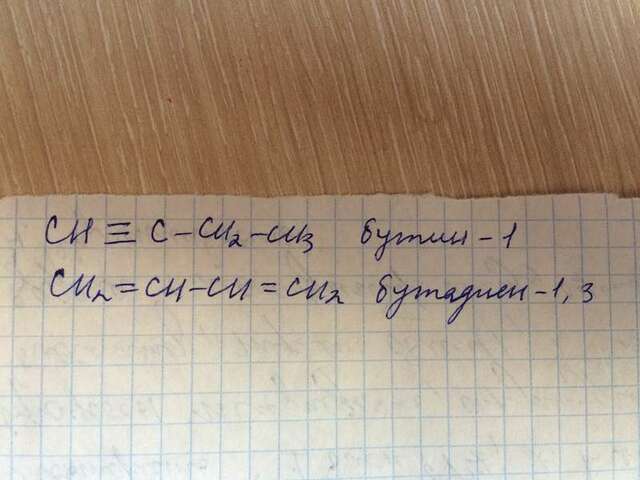 CH ≡ C – CH₂ – CH₃ бутин – 1
CH₂ = CH – CH = CH₂ бутадиен – 1, 3